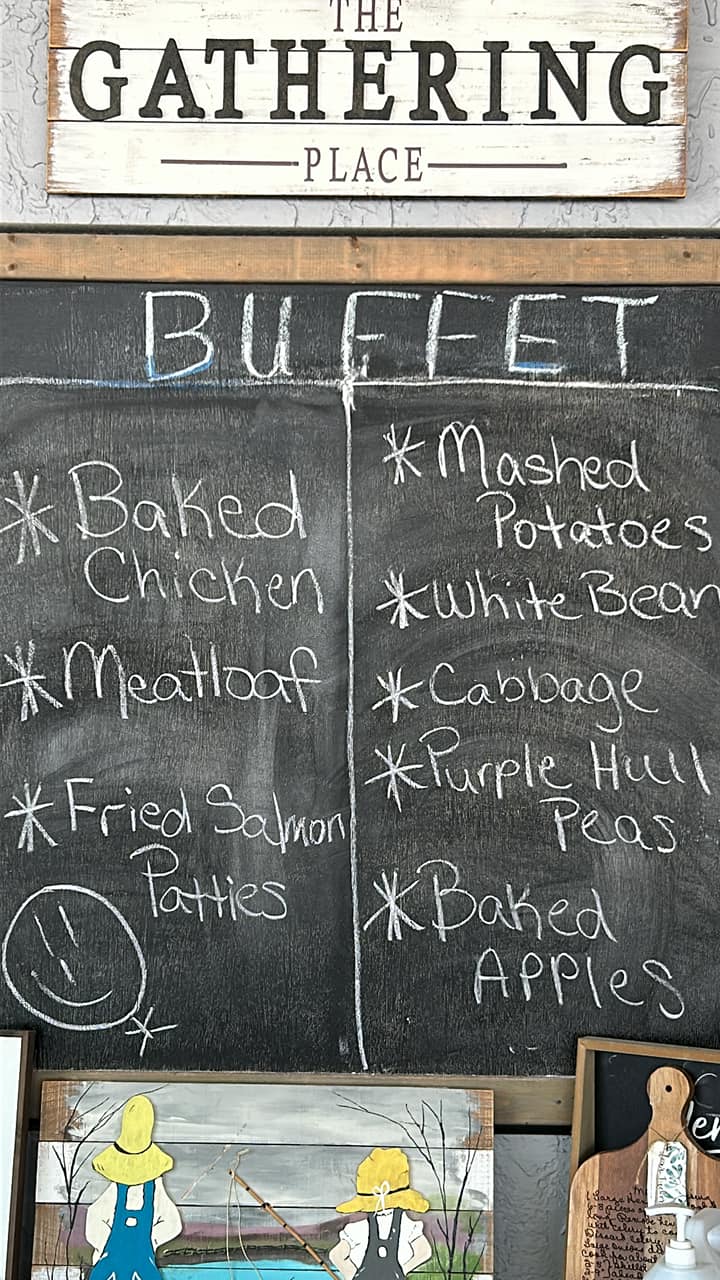 THE
GATHERING
PLACE
BUFFET
* Baked
Chicken
* Meatloaf
* Fried Salmon
Patties
* Mashed
Potatoes
* White Bean
* Cabbage
* Purple Hull
Peas
* Baked
Apples